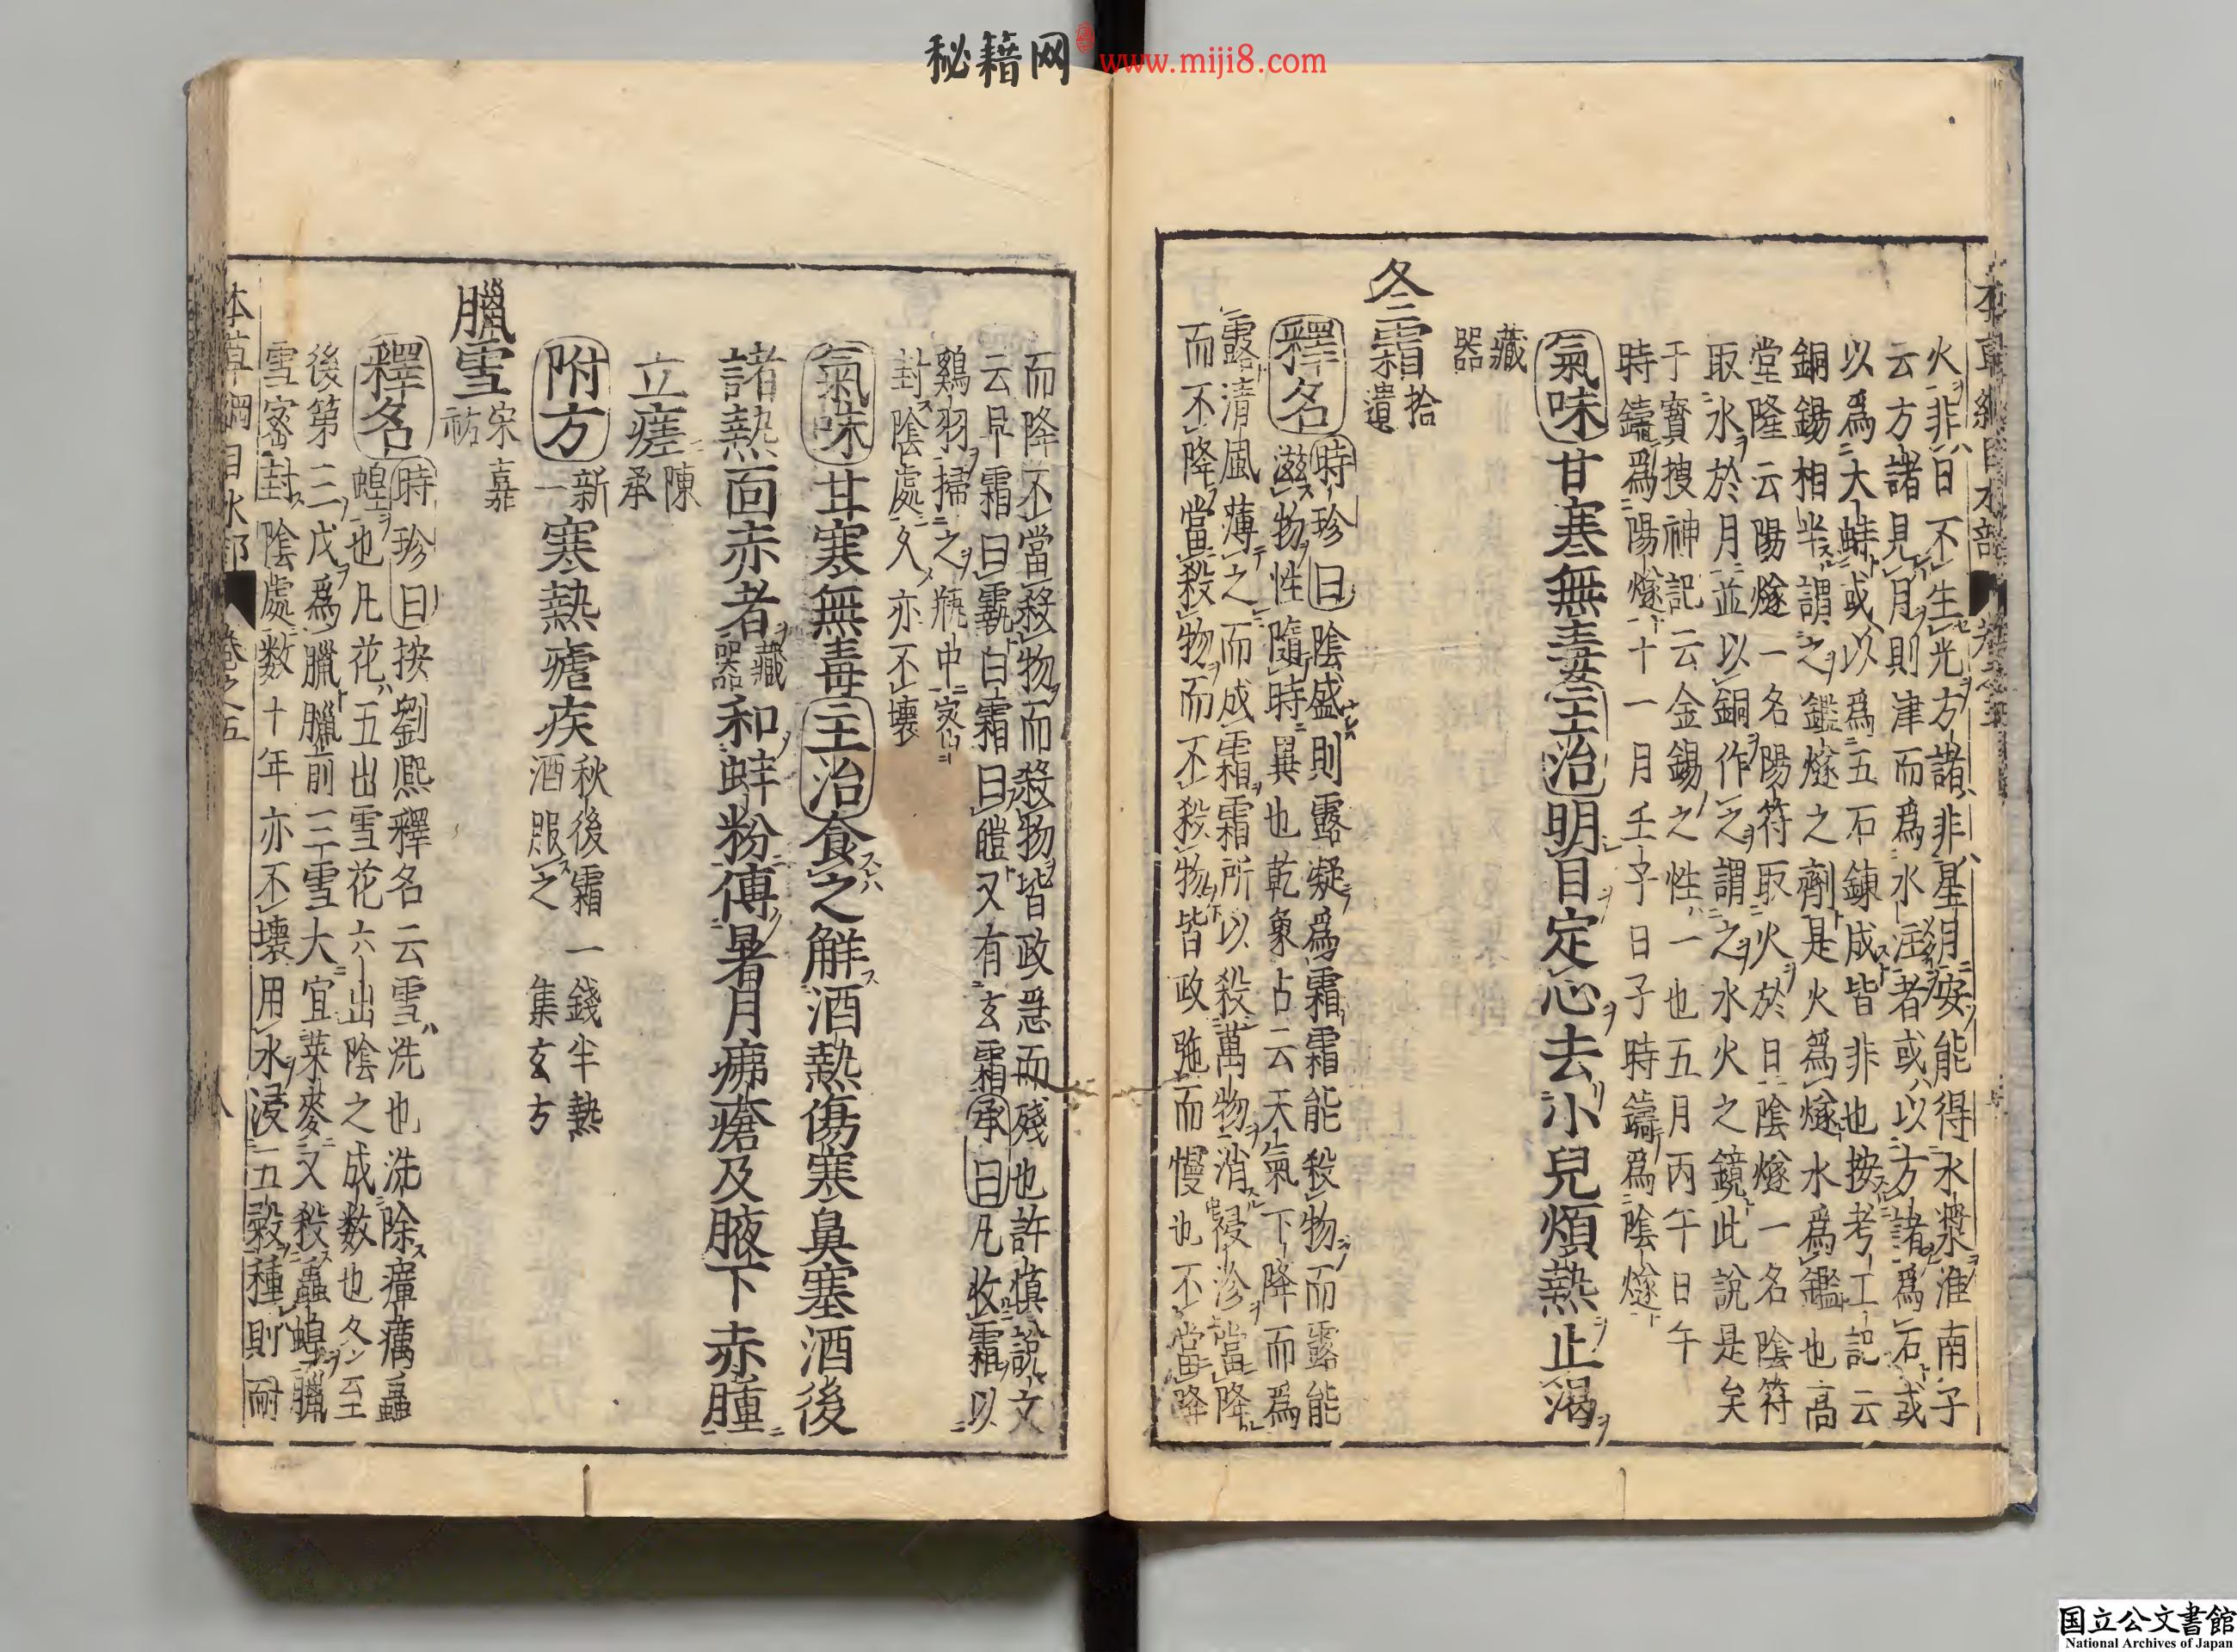 秘籍网 www.miji8.com
火非日不生光方諸非星月安能得水漿淮南子
云方諸見月則津而爲水注者或以方諸爲石或
以爲大蚌或以爲五石鍊成皆非也按考工記云
銅錫相半謂之鑑燧之劑是火爲燧水爲鑑也高
堂隆云陽燧一名陽符取火於日陰燧一名陰符
取水於月並以銅作之謂之水火之鏡此說是矣
于寶搜神記云金錫之性一也五月丙午日午
時鑄爲陽燧十一月壬子日子時鑄爲陰燧
氣味甘寒無毒主治明目定心去小兒煩熱止渴
藏
器
冬霜拾
遺
釋名時珍曰陰盛則露凝爲霜霜能殺物而露能
滋物性隨時異也乾象占云天氣下降而爲
露清風薄之而成霜霜所以殺萬物消祲沴當降
而不降當殺物而不殺物皆政弛而慢也不當降
而降不當殺物而殺物皆政急而殘也許愼說文
云早霜曰䨴白霜曰皚又有玄霜承曰凡收霜以
鷄羽掃之瓶中密
封陰處久亦不壞
氣味甘寒無毒主治食之解酒熱傷寒鼻塞酒後
諸熱面赤者藏
器和蚌粉傅暑月疿瘡及腋下赤腫
立瘥陳
承
附方新
一寒熱瘧疾秋後霜一錢半熱
酒服之 集玄方
臘雪宋嘉
祐
釋名時珍曰按劉熙釋名云雪洗也洗除瘴癘蟲
蝗也凡花五出雪花六出陰之成数也冬至
後第三戊爲臘臘前三雪大宜菜麥又殺蟲蝗臘
雪密封陰處数十年亦不壞用水浸五穀種則耐
本草綱目水部 卷之五 八
国立公文書館
National Archives of Japan